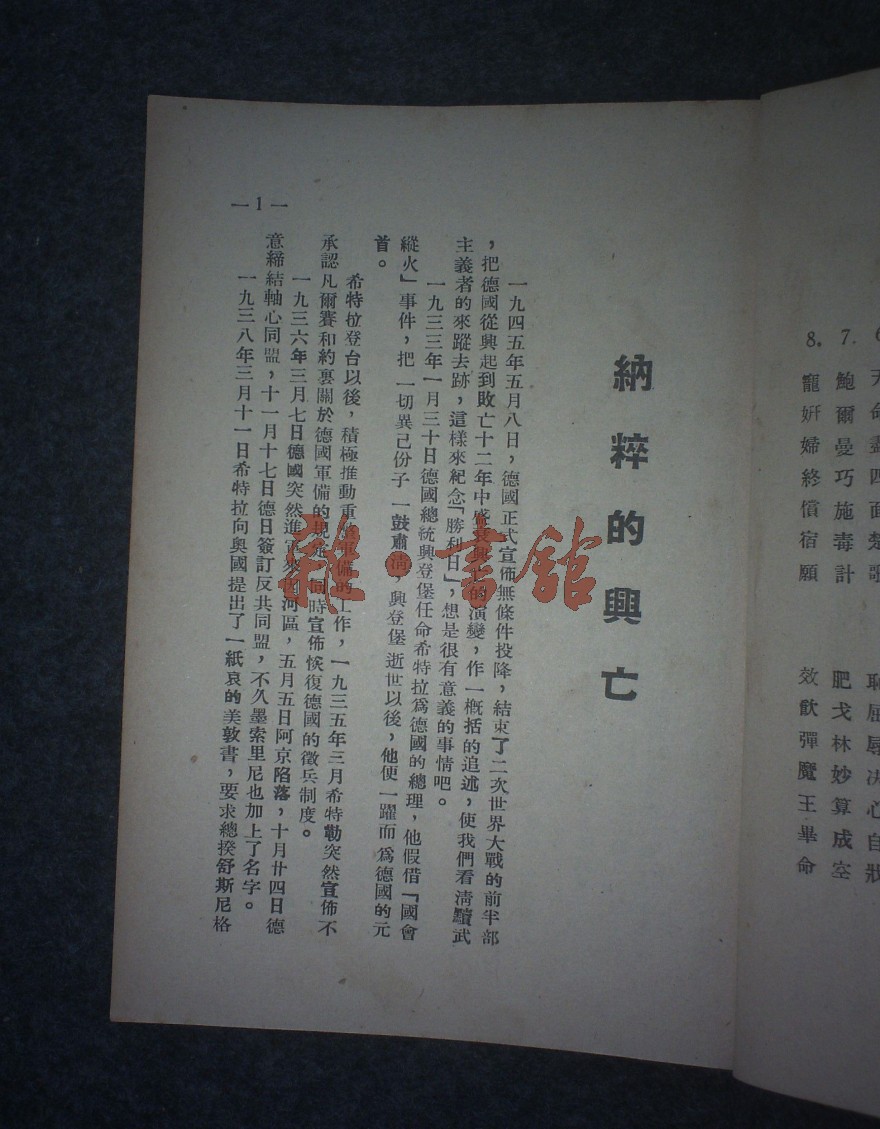 天命盡四面楚歌　恥屈辱决心自戕
7. 鮑爾曼巧施毒計　肥戈林妙算成空
8. 寵姸婦終償宿願　效飲彈魔王畢命
納粹的興亡
一九四五年五月八日，德國正式宣佈無條件投降，結束了二次世界大戰的前半部
，把德國從興起到敗亡十二年中盛衰興亡的演變，作一概括的追述，使我們看淸黷武
主義者的來蹤去跡，這樣來紀念「勝利日」，想是很有意義的事情吧。
一九三三年一月三十日德國總統興登堡任命希特拉爲德國的總理，他假借「國會
縱火」事件，把一切異己份子一鼓肅淸，興登堡逝世以後，他便一躍而爲德國的元
首。
希特拉登台以後，積極推動重整軍備的工作，一九三五年三月希特勒突然宣佈不
承認凡爾賽和約裏關於德國軍備的規定，同時宣佈恢復德國的徵兵制度。
一九三六年三月七日德國突然進軍萊茵河區，五月五日阿京陷落，十月廿四日德
意締結軸心同盟，十一月十七日德日簽訂反共同盟，不久墨索里尼也加上了名字。
一九三八年三月十一日希特拉向奧國提出了一紙哀的美敦書，要求總揆舒斯尼格
— 1 —
雜·書館